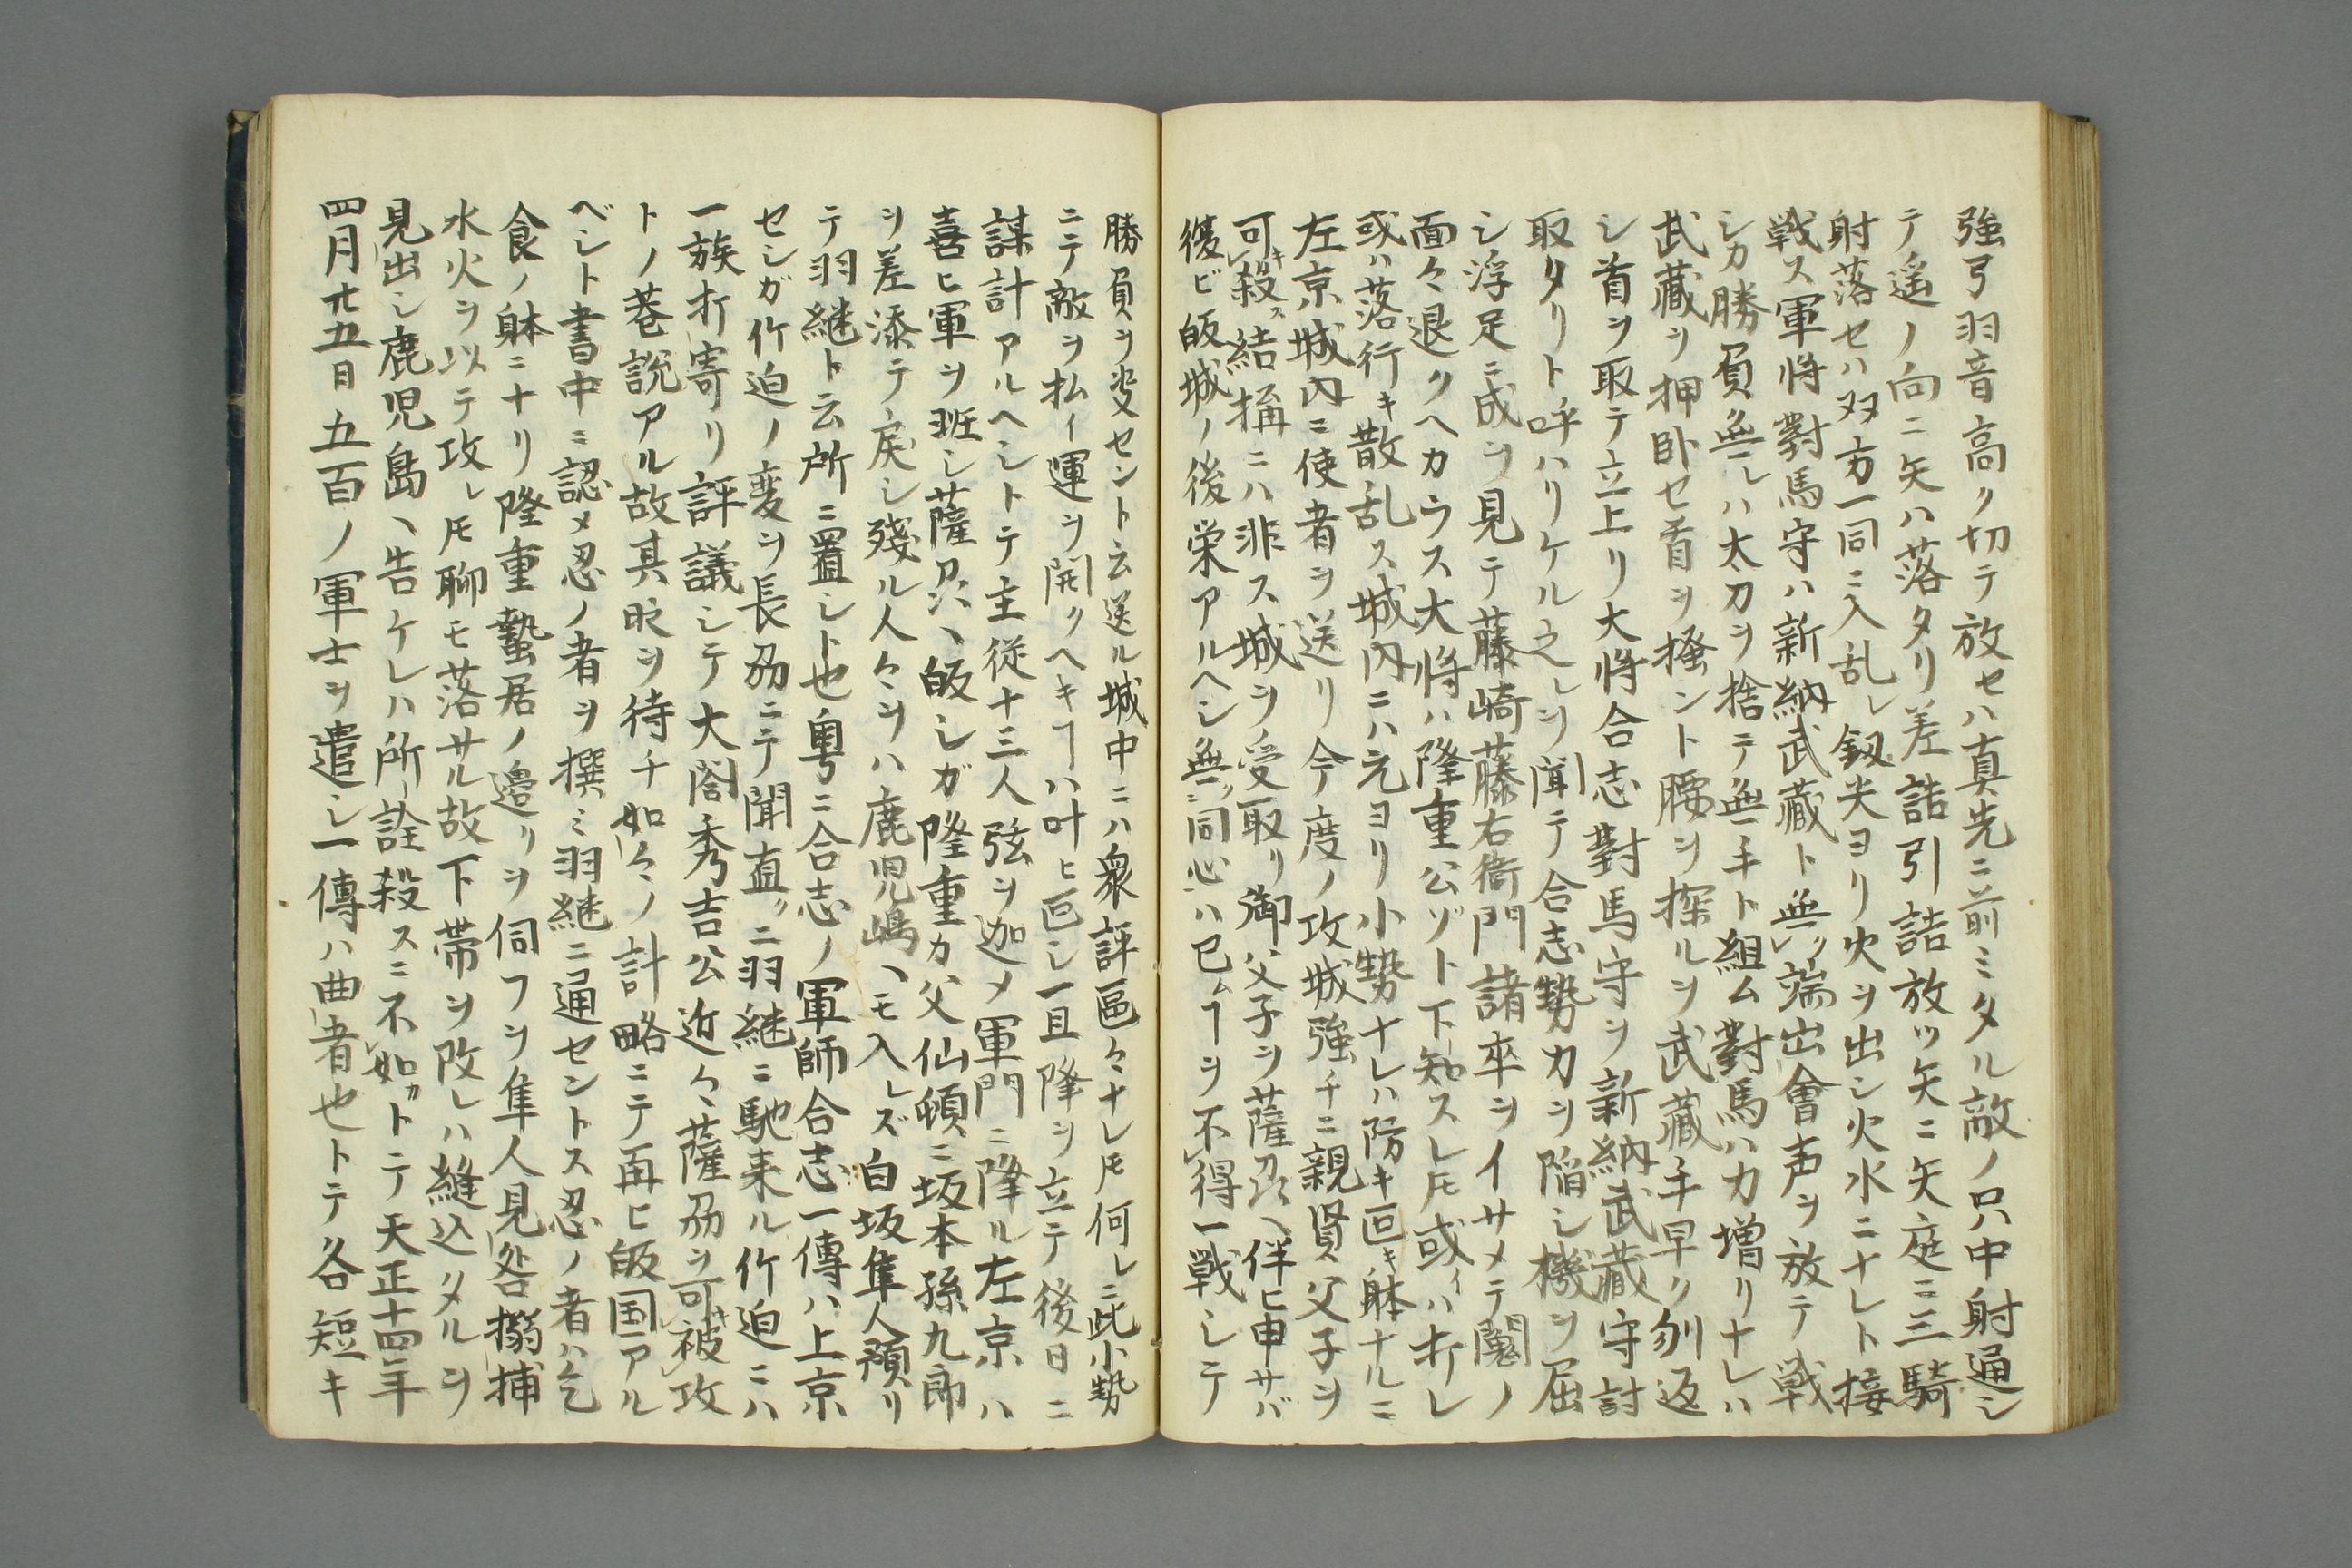 強弓羽音高ク切テ放セハ真先ニ前ミタル敵ノ只中射通シ
テ遥ノ向ニ矢ハ落タリ差詰引詰放ツ矢ニ矢庭ニ三騎
射落セハ双方一同ニ入乱レ釼尖ヨリ火ヲ出シ火水ニナレト接
戦ス軍将對馬守ハ新納武蔵ト無ク端出會声ヲ放テ戦
シカ勝負無レハ太刀ヲ捨テ無手ト組ム對馬ハ力増リナレハ
武蔵ヲ押臥セ首ヲ掻ント腰ヲ探ルヲ武蔵手早ク刎返
シ首ヲ取テ立上リ大将合志對馬守ヲ新納武蔵守討
取タリト呼ハリケル之レヲ聞テ合志勢力ヲ陥シ機ヲ屈
シ浮足ニ成ヲ見テ藤崎藤右衛門諸卒ヲイサメテ䦧ノ
面々退クヘカラス大将ハ隆重公ゾト下知スレ𪜈或イハ折レ
或ハ落行キ散乱ス城内ニハ元ヨリ小勢ナレハ防キ叵キ躰ナルニ
左京城内ニ使者ヲ送リ今度ノ攻城強チニ親賢父子ヲ
可キ殺ス結搆ニハ非ス城ヲ受取リ御父子ヲ薩刕ヘ伴ヒ申サバ
復ビ皈城ノ後栄アルヘシ無ンハ同心ハ已ムヿヲ不得一戦シテ
勝負ヲ决セント云送ル城中ニハ衆評區々ナレ𪜈何レニ此小勢
ニテ敵ヲ払イ運ヲ開クヘキヿハ叶ヒ叵シ一旦降ヲ立テ後日ニ
謀計アルヘシトテ主従十三人弦ヲ迦メ軍門ニ降ル左京ハ
喜ヒ軍ヲ班シ薩刕ヘ皈シガ隆重カ父仙頓ニ坂本孫九郎
ヲ差添テ戻シ殘ル人々ヲハ鹿児嶋ヘモ入レズ白坂隼人預リ
テ羽継ト云所ニ置シト也粤ニ合志ノ軍師合志一傳ハ上京
セシガ竹迫ノ変ヲ長刕ニテ聞直クニ羽継ニ馳来ル竹迫ニハ
一族打寄リ評議シテ大閤秀吉公近々薩刕ヲ可キ被攻
トノ巷説アル故其時ヲ待チ如々ノ計略ニテ再ヒ皈国アル
ベシト書中ニ認メ忍ノ者ヲ撰ミ羽継ニ通セントス忍ノ者ハ乞
食ノ躰ニナリ隆重蟄居ノ邉リヲ伺フヲ隼人見咎搦捕
水火ヲ以テ攻レ𪜈聊モ落サル故下帯ヲ改レハ縫込タルヲ
見出シ鹿児島ヘ告ケレハ所詮殺スニ不如カトテ天正十四年
四月廿五日五百ノ軍士ヲ遣シ一傳ハ曲者也トテ各短キ